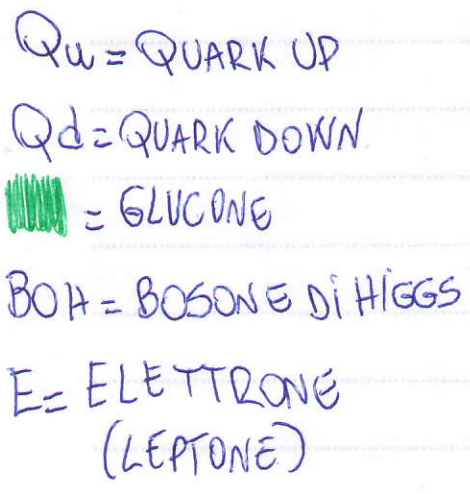 Qu = QUARK UP
Qd = QUARK DOWN
= GLUCONE
BOH = BOSONE Di HiGGS
E = ELETTRONE
(LEPTONE)